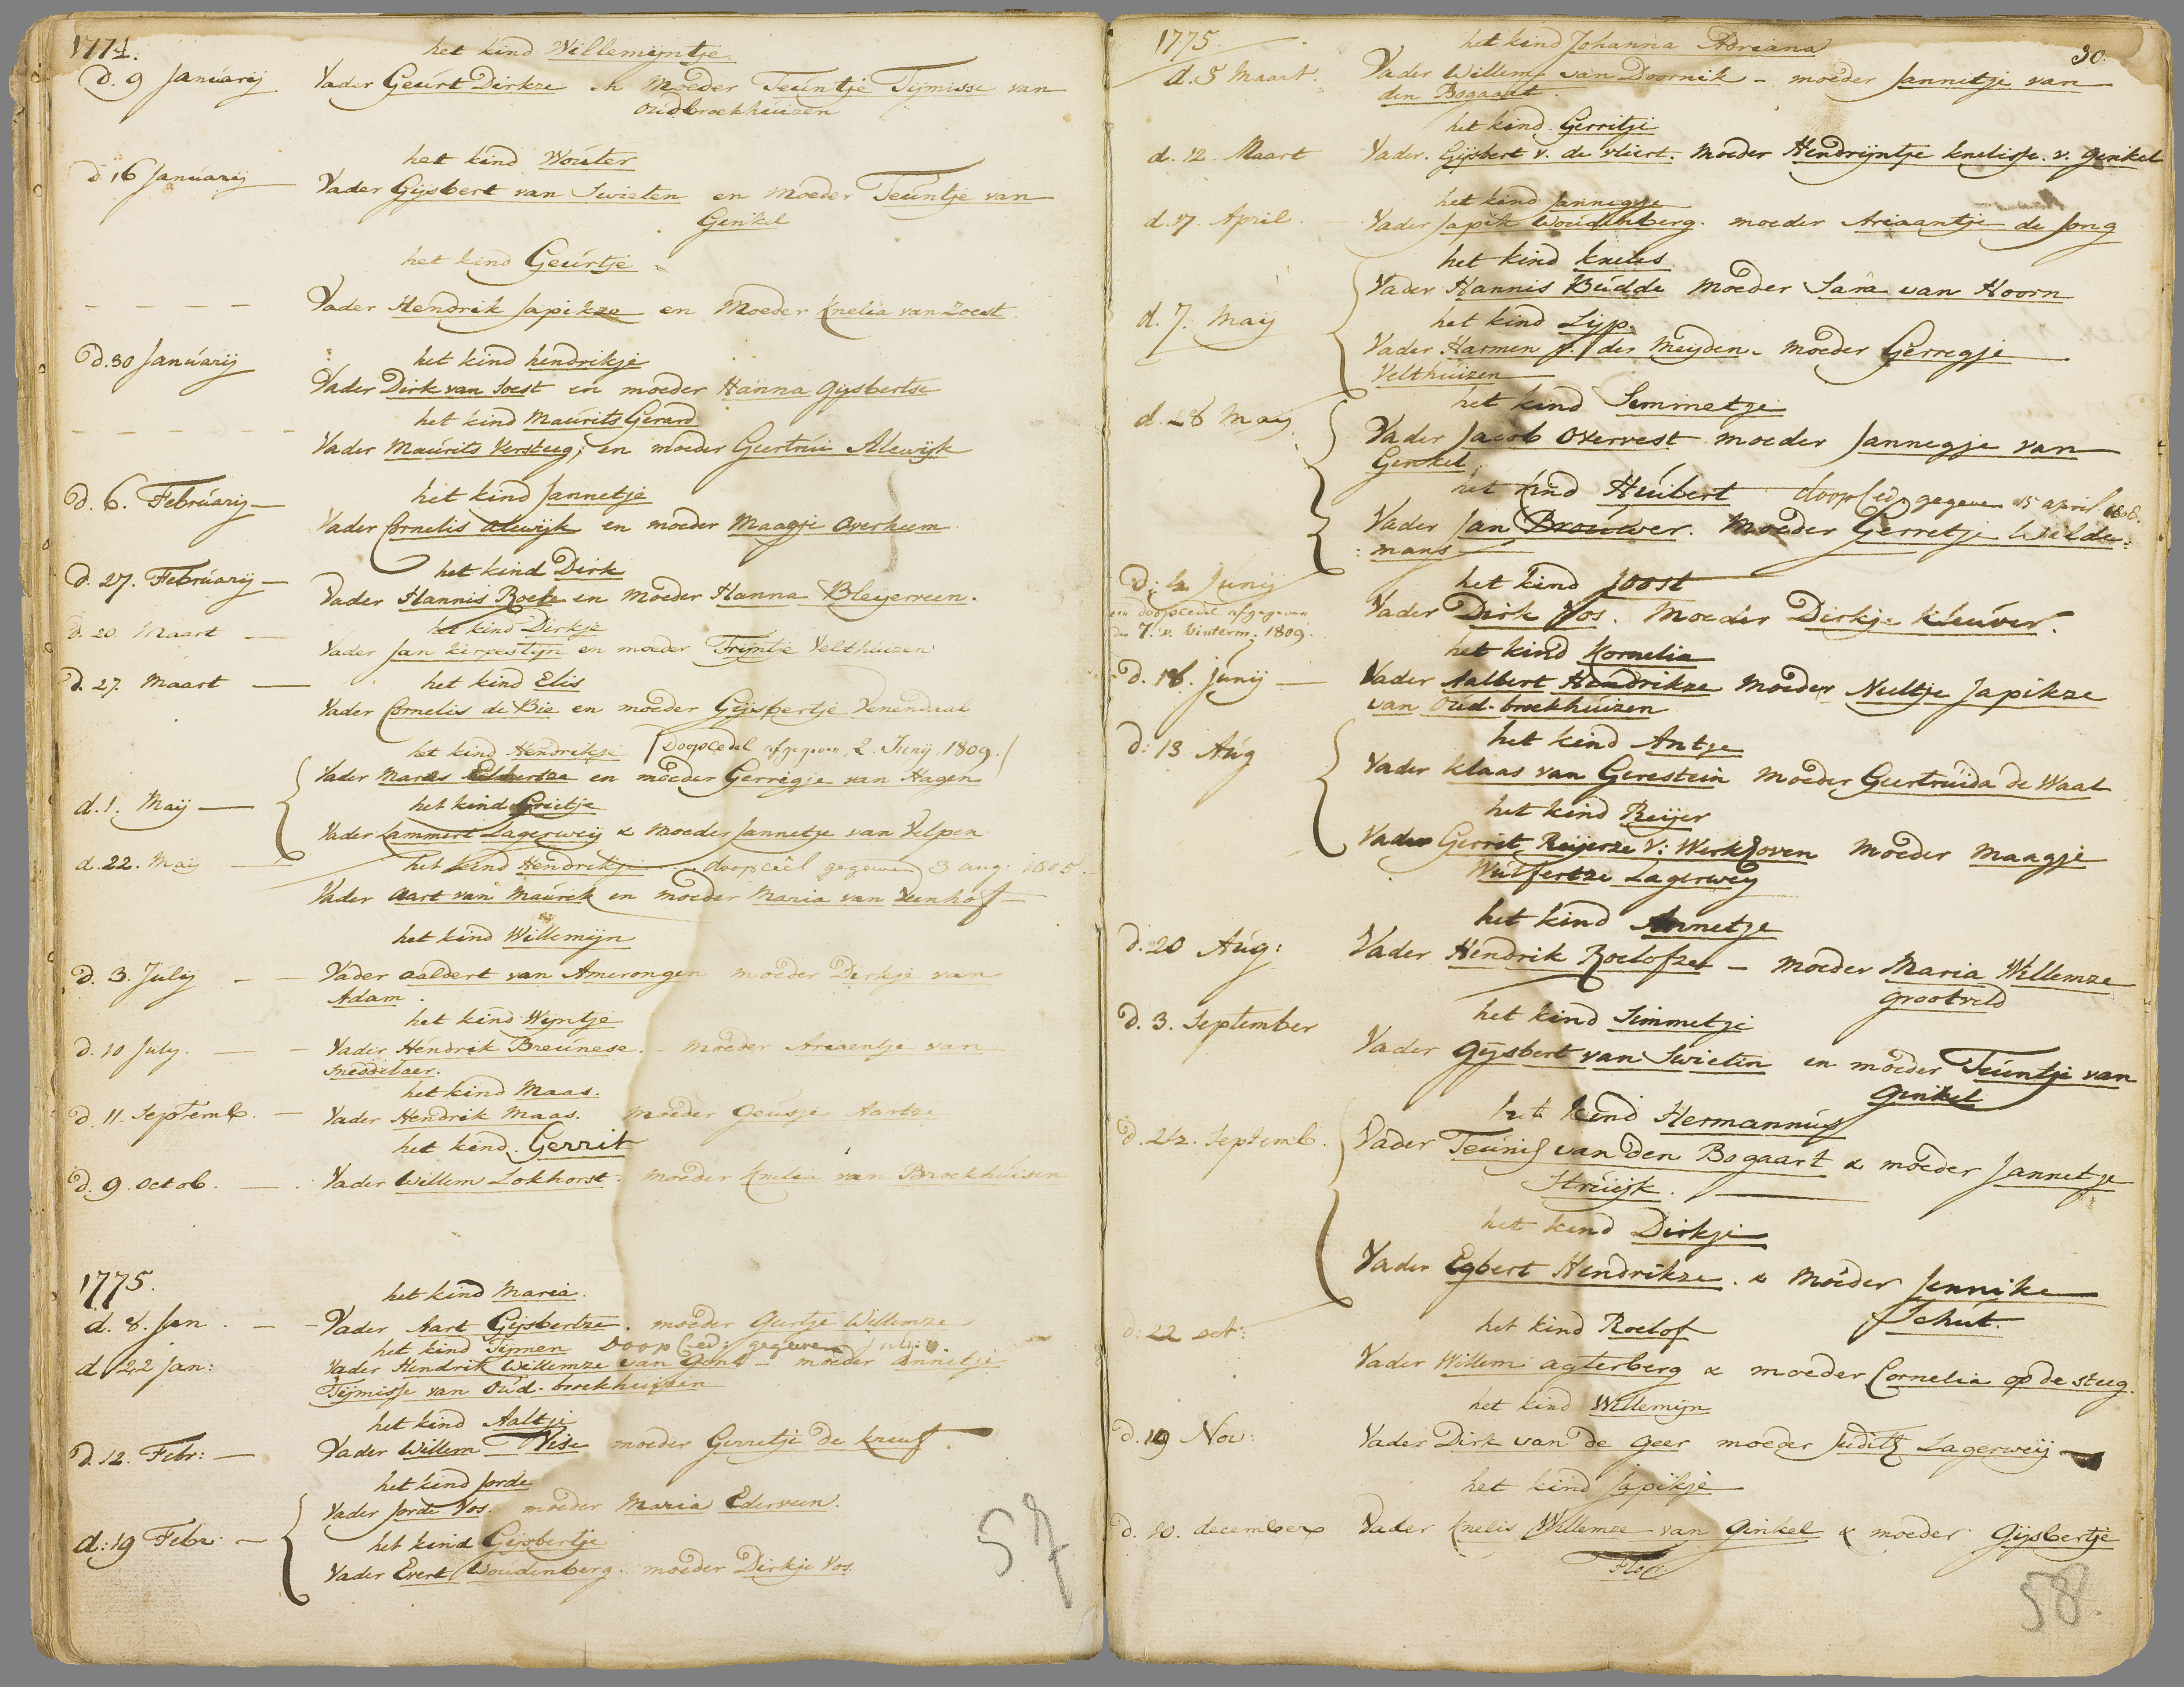 1774.
het kind Willemijntje
d. 9 Januarij Vader Geurt Dirkze en Moeder Teuntje Tijmisse van
Oudbroekhuizen
het kind Wouter
d 16 Januarij Vader Gijsbert van Swieten en Moeder Teuntje van
Ginkel
het kind Geurtje
- - - - Vader Hendrik Japikze en Moeder Knelia van Zoest
d. 30 Januarij het kind hendrikje
Vader Dirk van Soest en moeder Hanna Gijsbertse
het kind Maurits Gerard
- - - - - - Vader Maurits Versteeg, en moeder Geertrui Alewijk
d. 6. Februarij - het kind Jannetje
Vader Cornelis Alewijk en moeder Maagje Overheem
het kind Dirk
d. 27. Februarij - Vader Hannis Roek en Moeder Hanna Bleijerveen.
d. 20. Maart - het kind Dirkje
Vader Jan kerpestijn en moeder Trijntje Velthuizen.
d. 27. Maart - het kind Elis
Vader Cornelis de Bie en moeder Gijsbertje Venendaal
het kind Hendrikje (doopcedel afgegeven, 2. Junij, 1809.)
Vader Marses en moeder Gerregje van Hagen
d. 1. Maij - het kind Grietje
Vader Lammert Lagerweij & Moeder Jannetje van Velpen
d. 22. Mai - het kind Hendrikje doopceêl gegeven 3 aug: 1805.
Vader Aart van Maurik en moeder Maria van Veenhof
het kind Willemijn
d. 3. Julij - - Vader aaldert van Amerongen moeder Dirkje van
Adam.
het kind Wijntje
d. 10 July. - - Vader Hendrik Breunese. - moeder Ariaentje van
Sneddelaer.
het kind Maas.
d. 11. Septemb. - Vader Hendrik Maas. Moeder Geusje Aartze
het kind Gerrit
d. 9. octob. - Vader Willem Lokhorst. moeder Knelia van Broekhuisen
1775.
het kind Maria.
d. 8. Jan. - - Vader Aart Gijsbertze. moeder Geertje Willemze
het kind Tijmen Doop Ced: gegeven July
d. 22 Jan: Vader Hendrik Willemze van Gent - moeder Annetje
Tijmisse van Oud-broekhuizen
het kind Aaltje
d. 12. Febr: - Vader Willem Vise moeder Gerretje De kreuf.
het kind Jorde
Vader Jorde Vos. moeder Maria Ederveen.
d: 19 Febr: - het kind Gijsbertje
Vader Evert Woudenberg. moeder Dirkje Vos.
57
1775.
30.
het kind Johanna Adriana
d. 5 Maart. Vader Willem van Doornik - moeder Jannetje van
den Bogaart.
het kind Gerritje
d. 12. Maart Vader. Gijsbert v. de vliert. Moeder Hendrijntje knelisse. v. Ginkel
het kind Jannegje
d. 17. April. Vader Japik Woudenberg. moeder Ariaantje de Jong
het kind knelis
Vader Hannis Budde Moeder Sara van Hoorn
d. 7. Maij het kind Lijp.
Vader Harmen v. der Meijden. Moeder Gerregje
Velthuizen
d. 28 May. het kind Semmetje
Vader Jacob Overvest moeder Jannegje van
Genkel
het kind Huibert doop Ced. gegeven 15 april 1808.
Vader Jan Brouwer. Moeder Gerretje Wilde:
:mans
d: 4 Junij het kind Joost
een doopcedel afgegeven
de 7. v. Winterm. 1809. Vader Dirk Vos. Moeder Dirkje kleuver.
het kind Kornelia
d. 18. Junij - Vader Aalbert Hendrikze Moeder Neeltje Japikze
van Oud-broekhuizen
d: 13 Aug het kind Antje
Vader klaas van Gerestein Moeder Geertruida de Waal
het kind Reijer
Vader Gerrit Reijerze v: Werkhoven Moeder Maagje
Wulfertze Lagerweij
het kind Annetje
d. 20 Aug: Vader Hendrik Roelofze - Moeder Maria Willemze
grootveld
d. 3. September het kind Simmetje
Vader gijsbert van Swieten en moeder Teuntje van
Ginkel
het kind Hermannus
d. 24. Septemb. Vader Teunis van den Bogaart & moeder Jannetje
Struijk.
het kind Dirkje
Vader Egbert Hendrikze. & Moeder Jennike
Schut.
d. 22 oct: het kind Roelof
Vader Willem agterberg & moeder Cornelia op de steeg.
het kind Willemijn
d. 19 Nov: Vader Dirk van de Geer moeder Judith Lagerweij
het kind Japikje
d. 10. december Vader knelis Willemze van Ginkel & moeder Gijsbertje
58